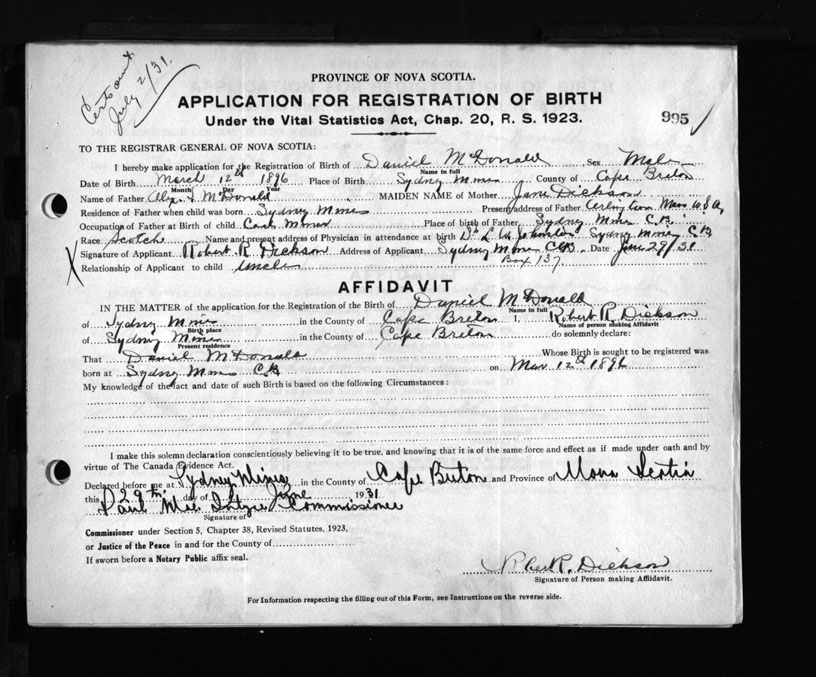 Cert sent
July 2/31.
PROVINCE OF NOVA SCOTIA.
APPLICATION FOR REGISTRATION OF BIRTH
Under the Vital Statistics Act, Chap. 20, R. S. 1923.
995
TO THE REGISTRAR GENERAL OF NOVA SCOTIA:
I hereby make application for the Registration of Birth of Daniel McDonald Sex Male
Name in full
Date of Birth March 12th 1896 Place of Birth Sydney Mines County of Cape Breton
Month Day Year
Name of Father McDonald MAIDEN NAME of Mother Jane Dickson
Residence of Father when child was born Sydney Mines Present address of Father Mass U.S.A.
Occupation of Father at Birth of child Coal Miner Place of birth of Father Sydney Mines C.B.
Race Scotch Name and present address of Physician in attendance at birth Dr L. W. Johnston Sydney Mines C.B.
Signature of Applicant Robert R Dickson Address of Applicant Sydney Mines C.B. Date June 29/31
Box 137.
Relationship of Applicant to child Uncle
AFFIDAVIT
IN THE MATTER of the application for the Registration of the Birth of Daniel McDonald
Name in full
of Sydney Mines in the County of Cape Breton I, Robert R. Dickson
Birth place Name of person making Affidavit
of Sydney Mines in the County of Cape Breton do solemnly declare:
Present residence
That Daniel McDonald Whose Birth is sought to be registered was
born at Sydney Mines C.B. on Mar 12th 1896
My knowledge of the fact and date of such Birth is based on the following Circumstances:
I make this solemn declaration conscientiously believing it to be true, and knowing that it is of the same force and effect as if made under oath and by
virtue of The Canada Evidence Act.
Declared before me at Sydney Mines in the County of Cape Breton and Province of Nova Scotia
this 29th day of June 1931
Paul Commissioner
Signature of
Commissioner under Section 5, Chapter 38, Revised Statutes, 1923,
or Justice of the Peace in and for the County of
If sworn before a Notary Public affix seal.
Robert R. Dickson
Signature of Person making Affidavit.
For Information respecting the filling out of this Form, see Instructions on the reverse side.